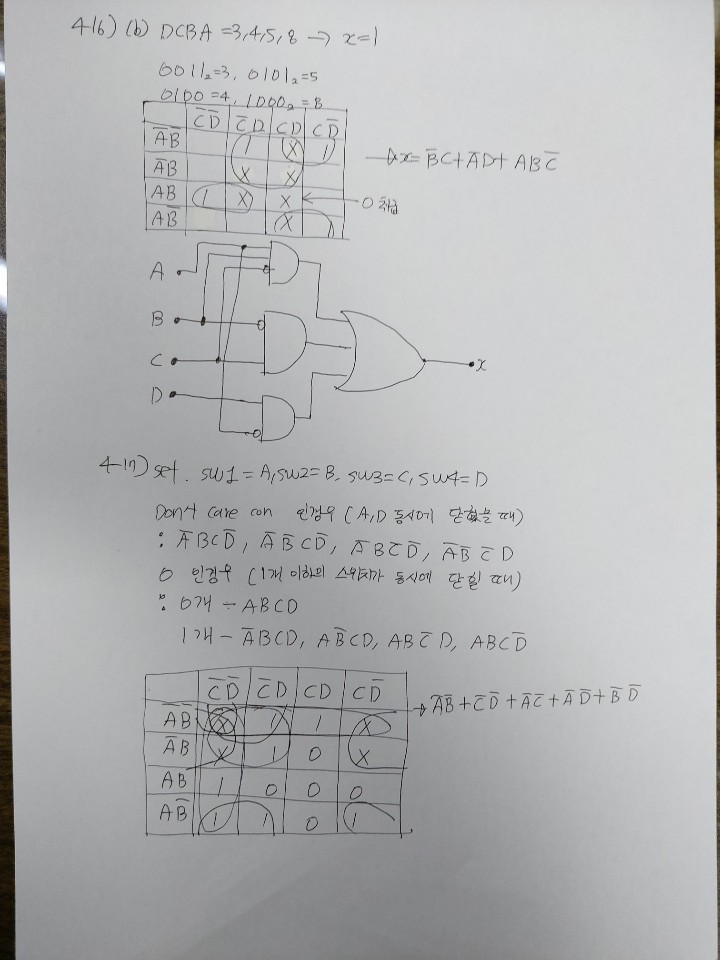 4-16) (b) DCBA = 3,4,5,8 → x=1
0011₂=3, 0101₂=5
0100 =4, 1000₂ = 8
C̅D̅ C̅D CD CD̅
A̅B̅ 1 X 1
A̅B X X
AB 1 X X ← 0 취급
AB̅ X 1
→ x= B̅C+A̅D+ABC̅
A
B
C
D
x
4-17) set. SW1 = A, SW2= B, SW3= C, SW4= D
Don't care con 인경우 (A,D 동시에 닫혔을 때)
: A̅BCD̅, A̅B̅CD̅, A̅BC̅D̅, A̅B̅C̅D
0 인경우 (1개 이하의 스위치가 동시에 닫힐 때)
: 0개 - ABCD
1개 - A̅BCD, AB̅CD, ABC̅D, ABCD̅
C̅D̅ C̅D CD CD̅
A̅B̅ X 1 1 X
A̅B X 1 0 X
AB 1 0 0 0
AB̅ 1 1 0 1
→ A̅B̅+C̅D̅+A̅C̅+A̅D̅+B̅D̅